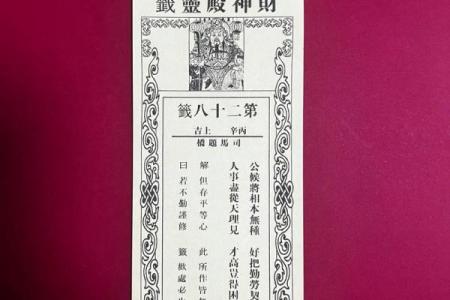 財神殿靈籤
第二十八籤
丙辛 上吉
司馬題橋
公候將相本無種 好把勤勞契
人事盡從天理見 才高豈得困
解 但存平等心 此所作皆
曰 若不勤謹修 籤 處必